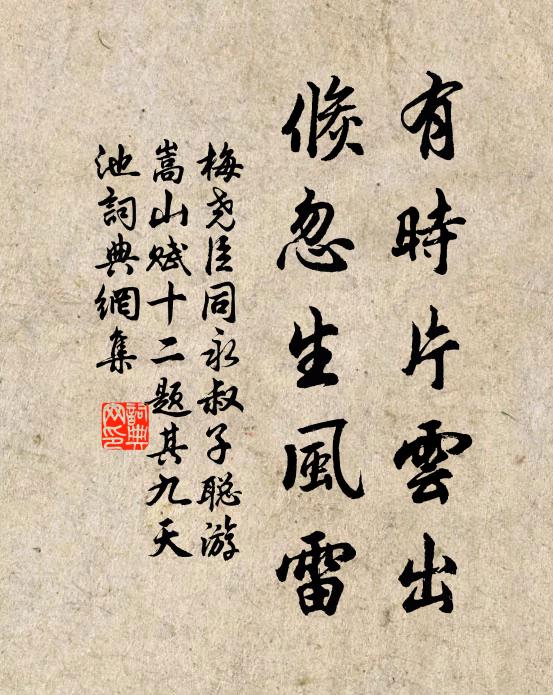 有時片雲出
倏忽生風雷
梅尧臣同永叔子聪游
嵩山赋十二题其九天
池詞典網集
詞典
网印